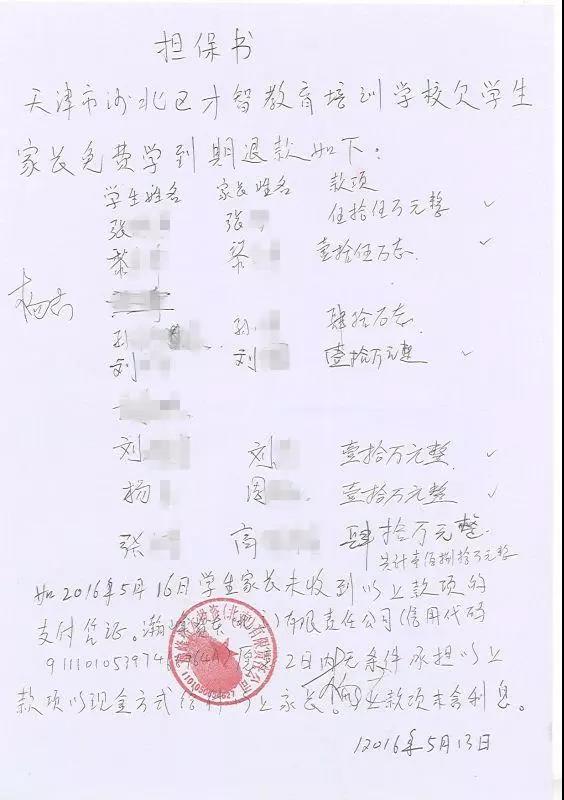 担保书
天津市河北区才智教育培训学校欠学生
家长免费学到期退款如下：
学生姓名 家长姓名 款项
张 张 伍拾伍万元整 ✓
黎 黎 壹拾伍万元 ✓
孙 孙 肆拾万元
刘 刘 壹拾万元整 ✓
刘 刘 壹拾万元整 ✓
杨 周 壹拾万元整 ✓
张 高 肆拾万元整
共计壹佰捌拾万元整
如2016年5月16日学生家长未收到以上款项的
支付凭证。瀚 资 有限责任公司（信用代码
91110105397 2日内无条件承担以上
款项以现金方式 以上家长。以上款项未含利息。
2016年5月13日